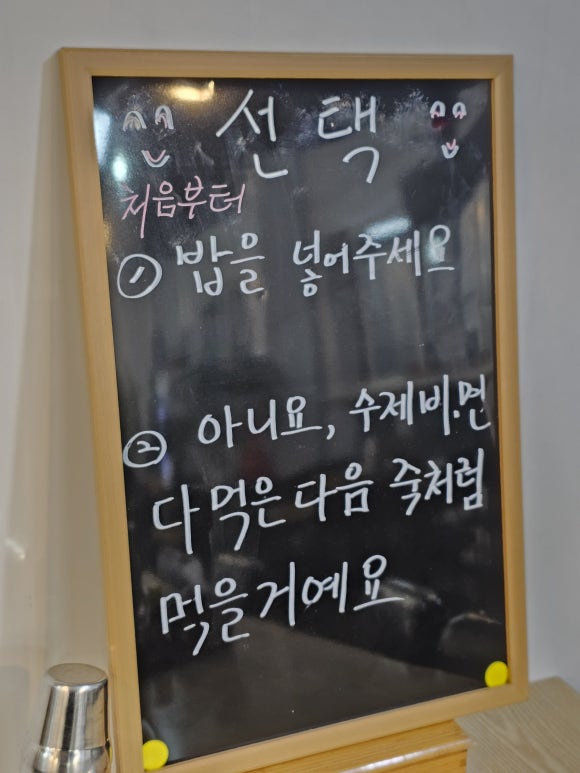 선택
처음부터
① 밥을 넣어주세요
② 아니요, 수제비.면
다 먹은 다음 죽처럼
먹을거예요